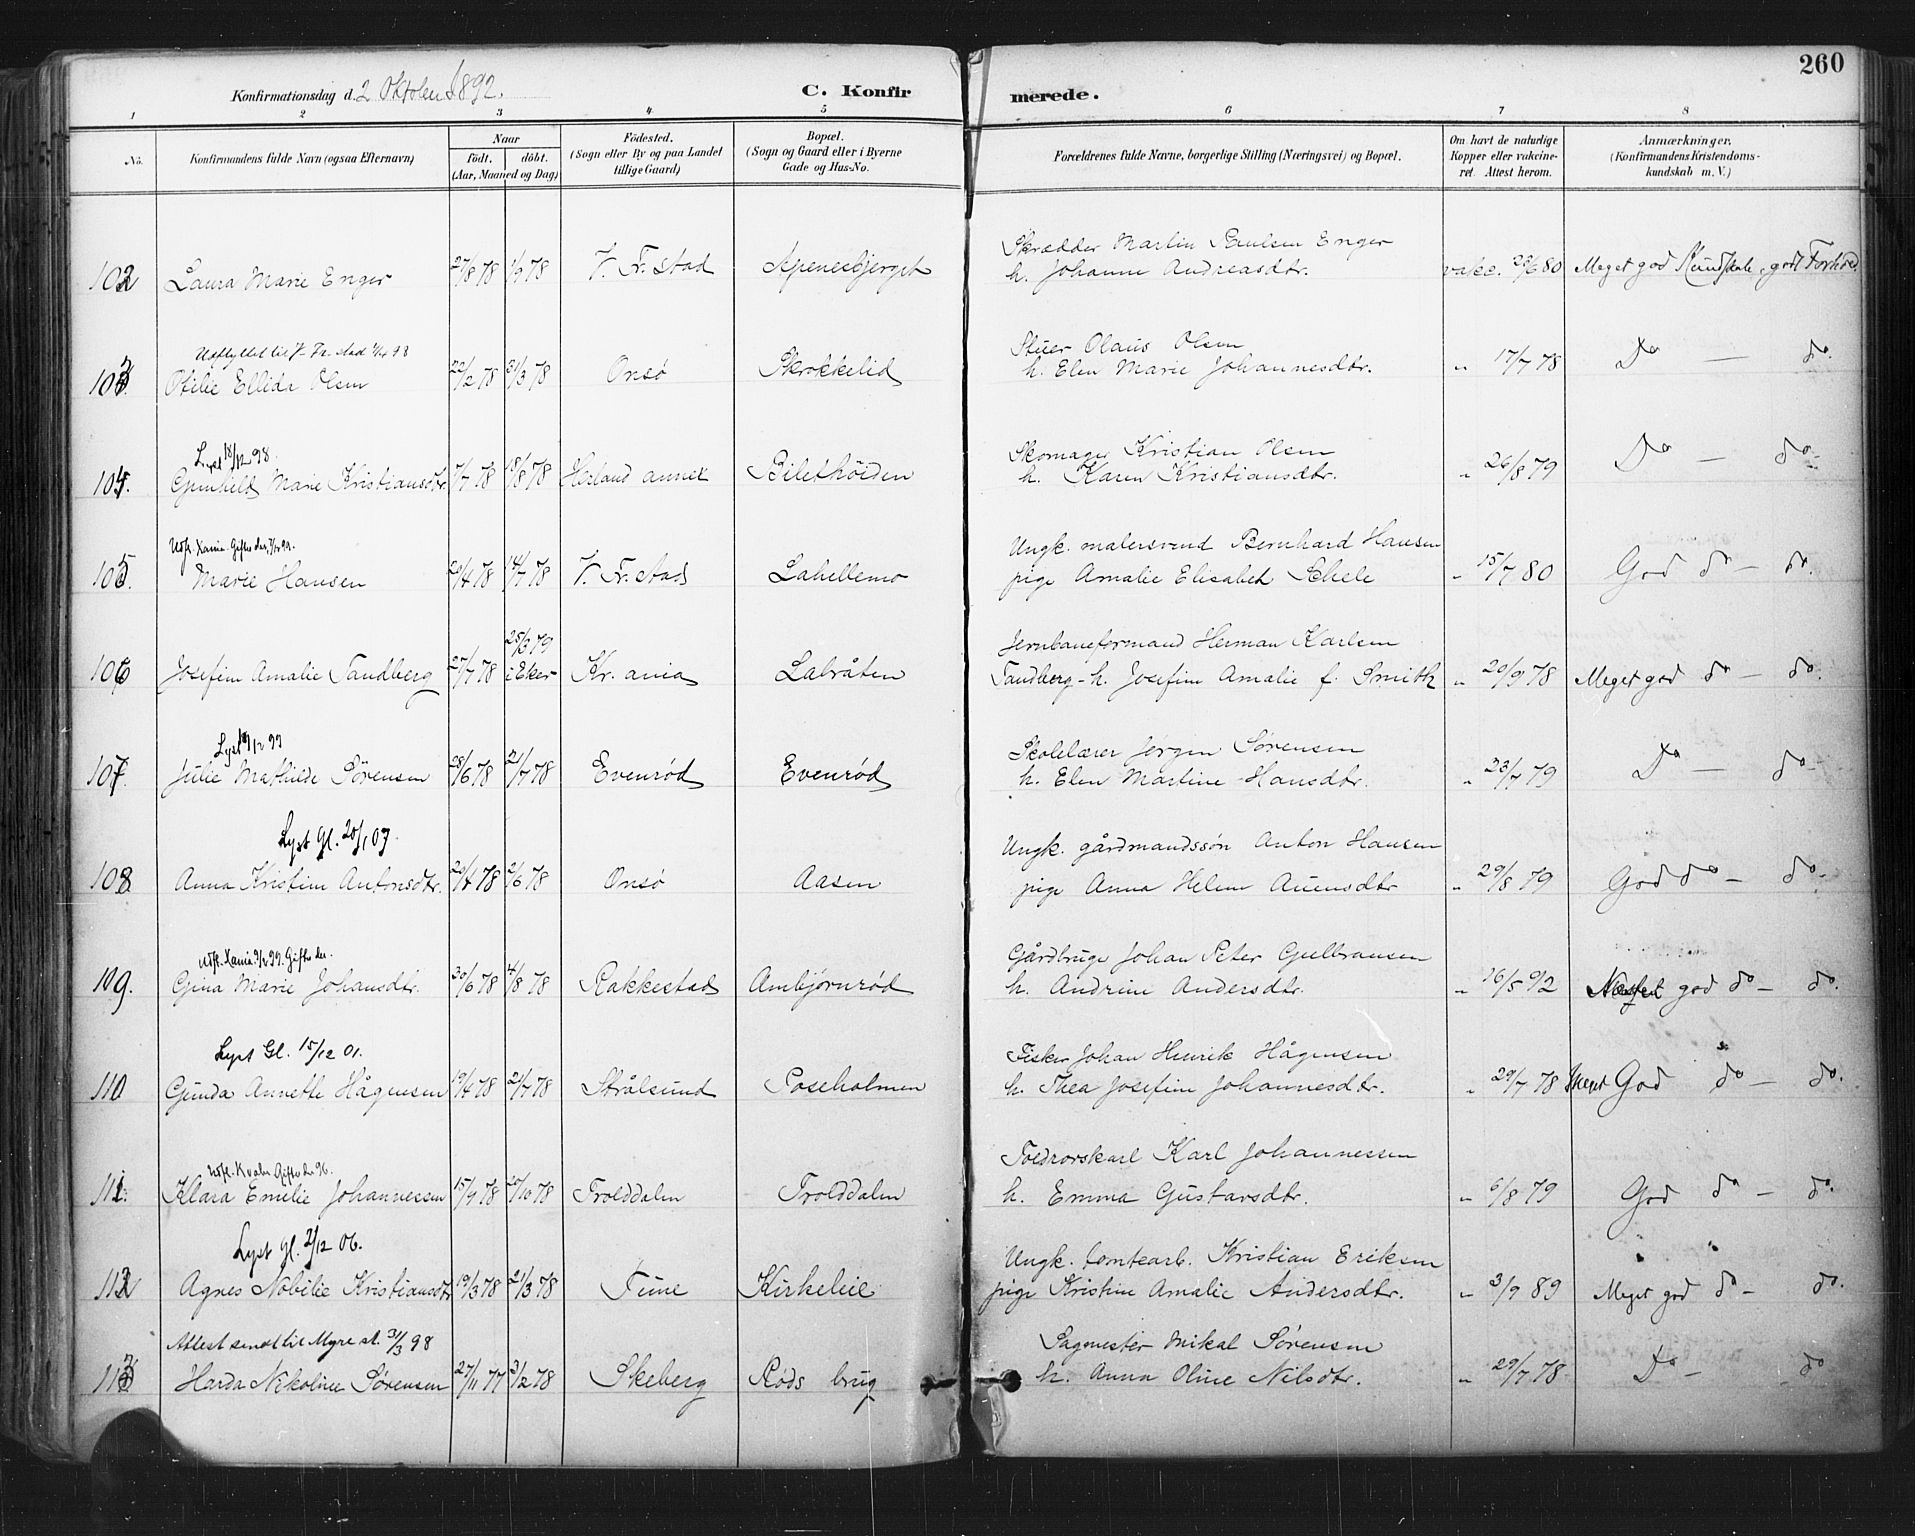 260
Konfirmationsdag d. 2 Oktober 1892.
C. Konfirmerede.
1 2 3 4 5 6 7 8
No.
Konfirmandens fulde Navn (ogsaa Efternavn)
Naar
födt. döbt.
(Aar, Maaned og Dag)
Födested.
(Sogn eller By og paa Landet
tillige Gaard)
Bopæl.
(Sogn og Gaard eller i Byerne
Gade og Hus-No.
Forældrenes fulde Navne, borgerlige Stilling (Næringsvei) og Bopæl.
Om havt de naturlige
Kopper eller vakcine-
ret. Attest herom.
Anmærkninger.
(Konfirmandens Kristendoms-
kundskab m. V.)
Skrædder Martin Paulsen Enger
102 Laura Marie Enger 27/8 78 1/9 78 V. Fr.stad Apenesbjerget h. Johanne Andreasdtr. vakc. 23/6 80 Meget god Kundskab, godt Forhold
Udflyttet til V. Fr.stad 4/4 98
Stuer Olaus Olsen
103. Otilie Ellida Olsen 22/2 78 31/3 78 Onsö Skrokkelid h. Elen Marie Johannesdtr. " 17/7 78 Do — do.
Lyst 18/12 98.
Skomager Kristian Olsen
104. Gunhild Marie Kristiansdtr. 7/7 78 18/8 78 Herland annex Bilethöiden h. Karen Kristiansdtr. " 26/8 79 Do — do.
Udfl. Xania. Giftes der, 3/12 99.
Ungk. malersvend Bernhard Hansen
105 Marie Hansen 20/4 78 14/7 78 V. Fr.stad Lahellemo pige Amalie Elisabeth Schele " 15/7 80 God do — do.
25/3 79
Jernbaneformand Herman Karlsen
106 Josefine Amalie Sandberg 27/7 78 i Eker Kr.ania Labråten Sandberg - h. Josefine Amalie f. Smith " 20/9 78 Meget god do — do.
Lyst 19/12 99
Skolelærer Jörgen Sörensen
107. Julie Mathilde Sörensen 28/6 78 21/7 78 Evenröd Evenröd h. Elen Martine Hansdtr. " 23/7 79 Do — do
Lyst Gl. 20/1 07.
Ungk. gårdmandssön Anton Hansen
108 Anna Kristine Antonsdtr. 20/4 78 2/6 78 Onsö Aasen pige Anna Helene Auensdtr " 29/8 79 God do — do.
Udfl. Xania 9/2 99. Giftes der.
Gårdbruge Johan Peter Gulbransen
109. Gina Marie Johansdtr. 30/6 78 4/8 78 Rakkestad Ambjörnröd h. Andrine Andersdtr. " 16/5 92 god do — do.
Lyst Gl. 15/12 01.
Fisker Johan Henrik Hågensen
110 Gunda Annette Hågensen 19/4 78 21/7 78 Strålsund Poseholmen h. Thea Josefine Johannesdtr. " 29/7 78 Meget God do — do.
Udfl. Kvaler. Giftes der 96.
Karl Johannessen
111. Klara Emelie Johannessen 15/9 78 20/10 78 Trolddalen Trolddalen h. Emma Gustavsdtr. " 6/8 79 God do — do.
Lyst Gl. 2/12 06.
Ungk. tomtearb. Kristian Eriksen
112 Agnes Nobilie Kristiansdtr 19/3 78 21/3 78 Tune Kirkeleie pige Kristine Amalie Andersdtr. " 3/9 89 Meget god do — do.
Attest sendt til Myre st. 31/3 98
Sagmester Mikal Sörensen
113 Harda Nikoline Sörensen 27/11 77 3/2 78 Skeberg Röds brug h. Anna Oline Nilsdtr. " 29/7 78. Do — do